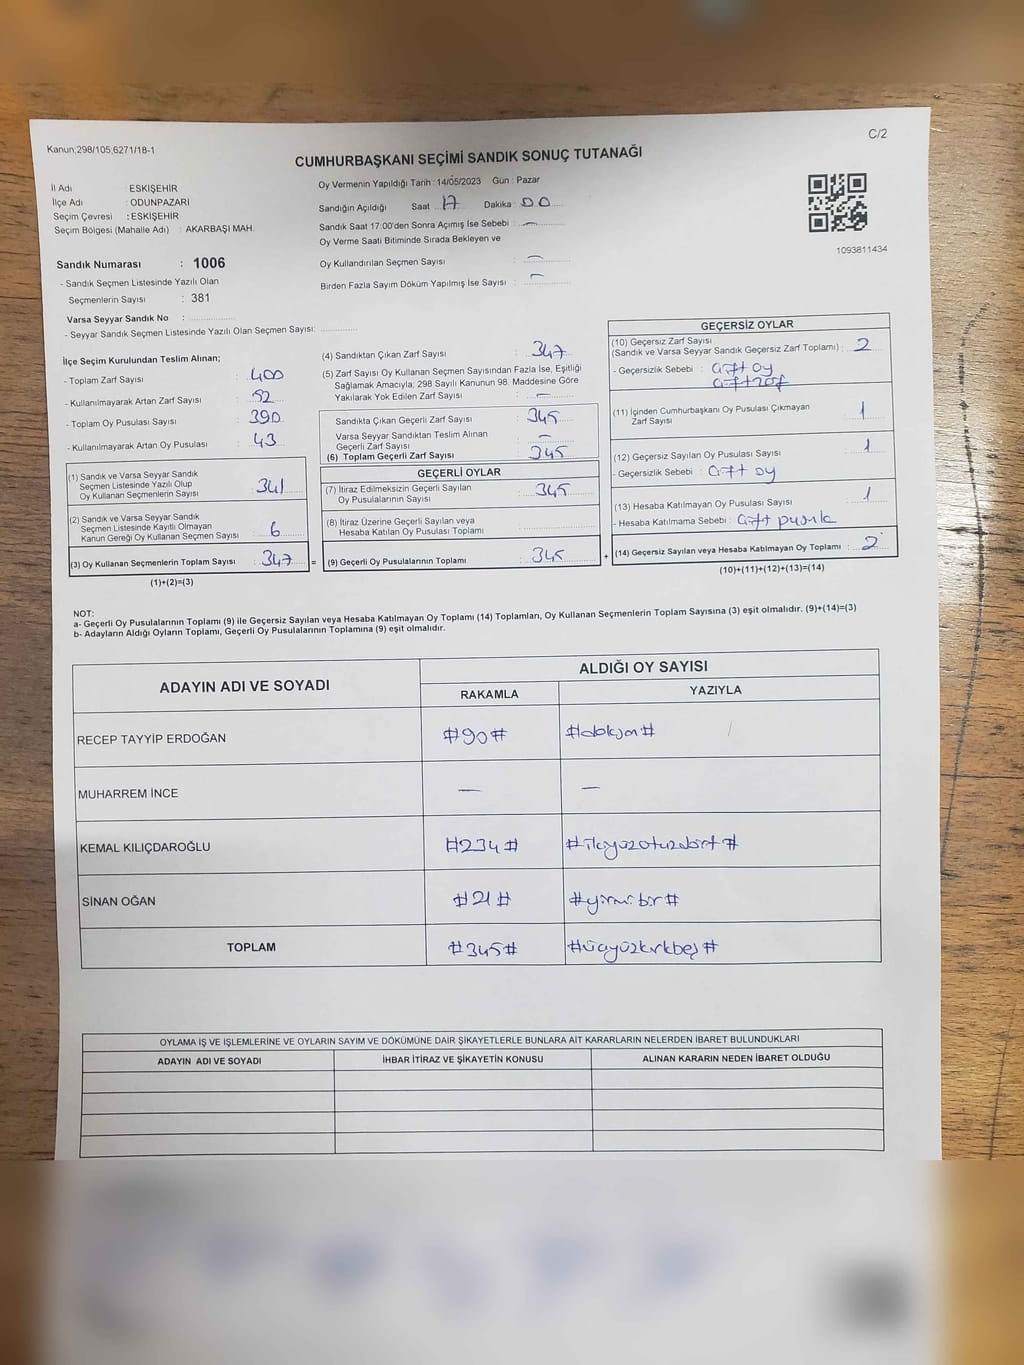 C/2
Kanun;298/105;6271/18-1
CUMHURBAŞKANI SEÇİMİ SANDIK SONUÇ TUTANAĞI
İl Adı : ESKİŞEHİR
İlçe Adı : ODUNPAZARI
Seçim Çevresi : ESKİŞEHİR
Seçim Bölgesi (Mahalle Adı) : AKARBAŞI MAH.
Sandık Numarası : 1006
- Sandık Seçmen Listesinde Yazılı Olan
Seçmenlerin Sayısı : 381
Varsa Seyyar Sandık No :
- Seyyar Sandık Seçmen Listesinde Yazılı Olan Seçmen Sayısı:
Oy Vermenin Yapıldığı Tarih : 14/05/2023 Gün : Pazar
Sandığın Açıldığı Saat 17 Dakika : 00
Sandık Saat 17:00'den Sonra Açımış İse Sebebi : —
Oy Verme Saati Bitiminde Sırada Bekleyen ve
Oy Kullandırılan Seçmen Sayısı : —
Birden Fazla Sayım Döküm Yapılmış İse Sayısı : —
1093811434
İlçe Seçim Kurulundan Teslim Alınan;
- Toplam Zarf Sayısı : 400
- Kullanılmayarak Artan Zarf Sayısı : 52
- Toplam Oy Pusulası Sayısı : 390
- Kullanılmayarak Artan Oy Pusulası : 43
(1) Sandık ve Varsa Seyyar Sandık
Seçmen Listesinde Yazılı Olup
Oy Kullanan Seçmenlerin Sayısı : 341
(2) Sandık ve Varsa Seyyar Sandık
Seçmen Listesinde Kayıtlı Olmayan
Kanun Gereği Oy Kullanan Seçmen Sayısı : 6
(3) Oy Kullanan Seçmenlerin Toplam Sayısı : 347 =
(1)+(2)=(3)
(4) Sandıktan Çıkan Zarf Sayısı : 347
(5) Zarf Sayısı Oy Kullanan Seçmen Sayısından Fazla İse, Eşitliği
Sağlamak Amacıyla; 298 Sayılı Kanunun 98. Maddesine Göre
Yakılarak Yok Edilen Zarf Sayısı : —
Sandıkta Çıkan Geçerli Zarf Sayısı : 345
Varsa Seyyar Sandıktan Teslim Alınan
Geçerli Zarf Sayısı : —
(6) Toplam Geçerli Zarf Sayısı : 345
GEÇERLİ OYLAR
(7) İtiraz Edilmeksizin Geçerli Sayılan
Oy Pusulalarının Sayısı : 345
(8) İtiraz Üzerine Geçerli Sayılan veya
Hesaba Katılan Oy Pusulası Toplamı :
(9) Geçerli Oy Pusulalarının Toplamı : 345 +
GEÇERSİZ OYLAR
(10) Geçersiz Zarf Sayısı
(Sandık ve Varsa Seyyar Sandık Geçersiz Zarf Toplamı) : 2
- Geçersizlik Sebebi : Çift oy
Çift zarf
(11) İçinden Cumhurbaşkanı Oy Pusulası Çıkmayan
Zarf Sayısı : 1
(12) Geçersiz Sayılan Oy Pusulası Sayısı : 1
- Geçersizlik Sebebi : Çift oy
(13) Hesaba Katılmayan Oy Pusulası Sayısı : 1
- Hesaba Katılmama Sebebi : Çift pusula
(14) Geçersiz Sayılan veya Hesaba Katılmayan Oy Toplamı : 2
(10)+(11)+(12)+(13)=(14)
NOT:
a- Geçerli Oy Pusulalarının Toplamı (9) ile Geçersiz Sayılan veya Hesaba Katılmayan Oy Toplamı (14) Toplamları, Oy Kullanan Seçmenlerin Toplam Sayısına (3) eşit olmalıdır. (9)+(14)=(3)
b- Adayların Aldığı Oyların Toplamı, Geçerli Oy Pusulalarının Toplamına (9) eşit olmalıdır.
ADAYIN ADI VE SOYADI
ALDIĞI OY SAYISI
RAKAMLA YAZIYLA
RECEP TAYYİP ERDOĞAN #90# #doksan#
MUHARREM İNCE — —
KEMAL KILIÇDAROĞLU #234# #ikiyüzotuzdört#
SİNAN OĞAN #21# #yirmibir#
TOPLAM #345# #üçyüzkırkbeş#
OYLAMA İŞ VE İŞLEMLERİNE VE OYLARIN SAYIM VE DÖKÜMÜNE DAİR ŞİKAYETLERLE BUNLARA AİT KARARLARIN NELERDEN İBARET BULUNDUKLARI
ADAYIN ADI VE SOYADI İHBAR İTİRAZ VE ŞİKAYETİN KONUSU ALINAN KARARIN NEDEN İBARET OLDUĞU